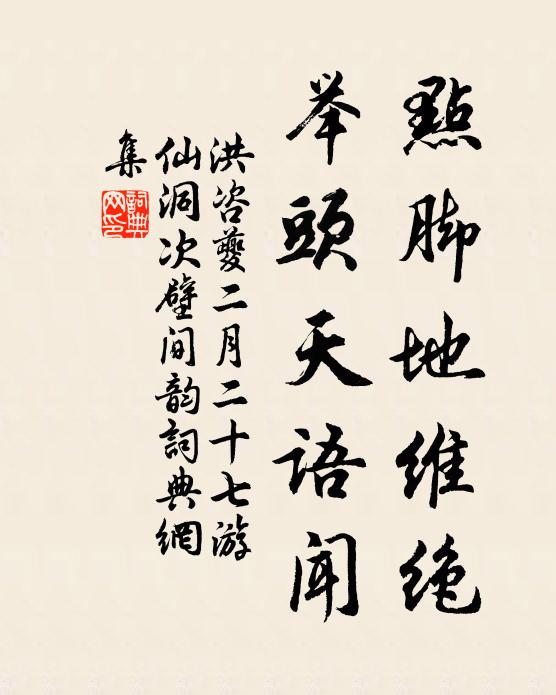 點脚地维绝
举頭天语闻
洪咨夔二月二十七游
仙洞次壁间韵詞典網
集
詞典
网印